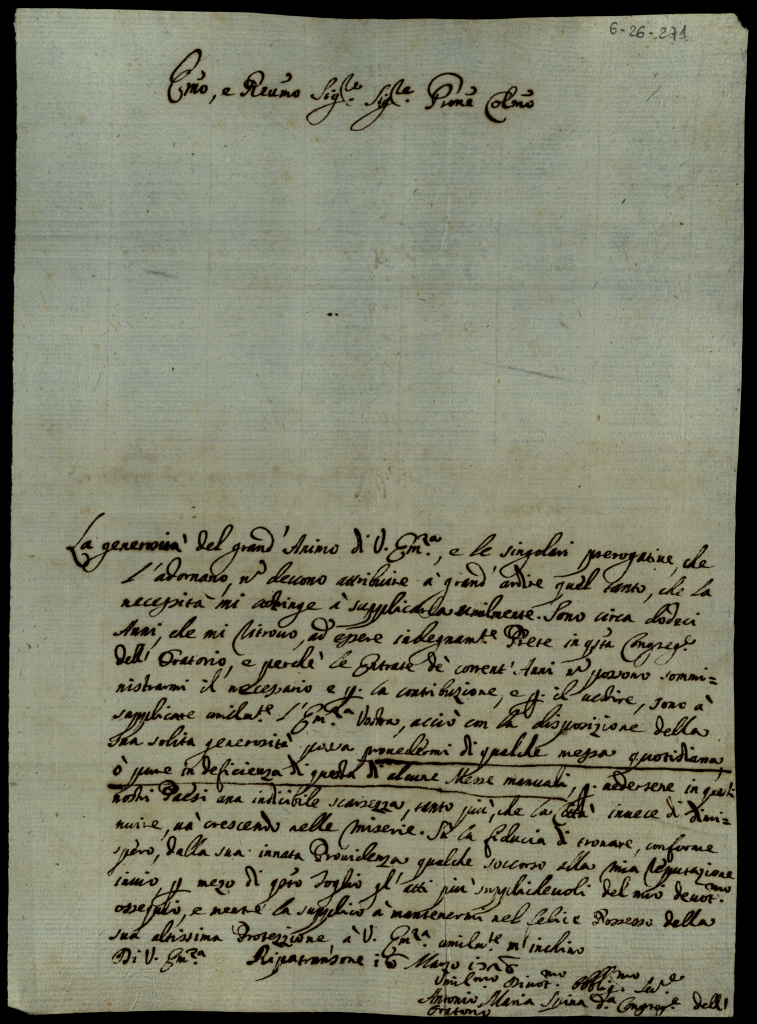 6-26-271
Emo, e Reumo Sigre. Sigre. Prone Colmo
La generosità del grand' Animo di V. Emza, e le singolari prerogatiue, che
l'adornano, nn deuono attribuire à grand' ardire quel tanto, che la
necessità mi astringe à supplicarla umilmente. Sono circa dodeci
Anni, che mi ritrouo, ad essere indegnamte Prete in qsta Congrege
dell' Oratorio, e perchè le Entrate de corrent' Anni nn possono sommi=
nistrarmi il necessario e p. la contribuzione, e p. il uestire, sono à
supplicare umilmte l'Emza Vostra, acciò con la disposizione della
sua solita generosità possa prouedermi di qualche messa quotidiana,
ò pure in deficienza di questa di alcune Messe manuali, p. uedersene in questi
nostri Paesi una indicibile scarsezza, tanto più, che la Città inuece di dimi=
nuire, uà crescendo nelle miserie. Sù la fiducia di trouare, conforme
spero, dalla sua innata Prouidenza qualche soccorso alla mia
inuio, p. mezo di qsto foglio gl' atti più supplicheuoli del mio deuotmo
ossequio, e mentre la supplico à mantenermi nel felice Possesso della
sua altissima Protezzione, à V. Emza umilmte m' inchino
Di V. Emza Ripatransone Marzo
Umilmo Diuotmo Obbligmo Sere
Antonio Maria Spina da. Congrege dell'
Oratorio